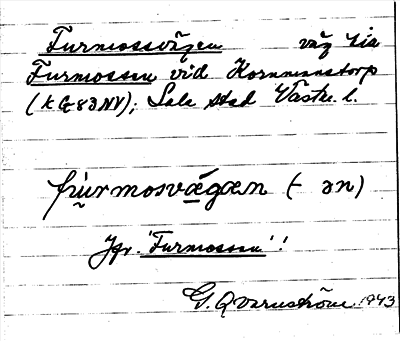 Furmossvägen väg via
Furmossen vid Kornmanstorp
(k G 83 NV); Sala stad Västm. l.
fu̯rmosvǽgæn (- ən)
Jfr. 'Furmossen'!
G. Qvarnström 1943